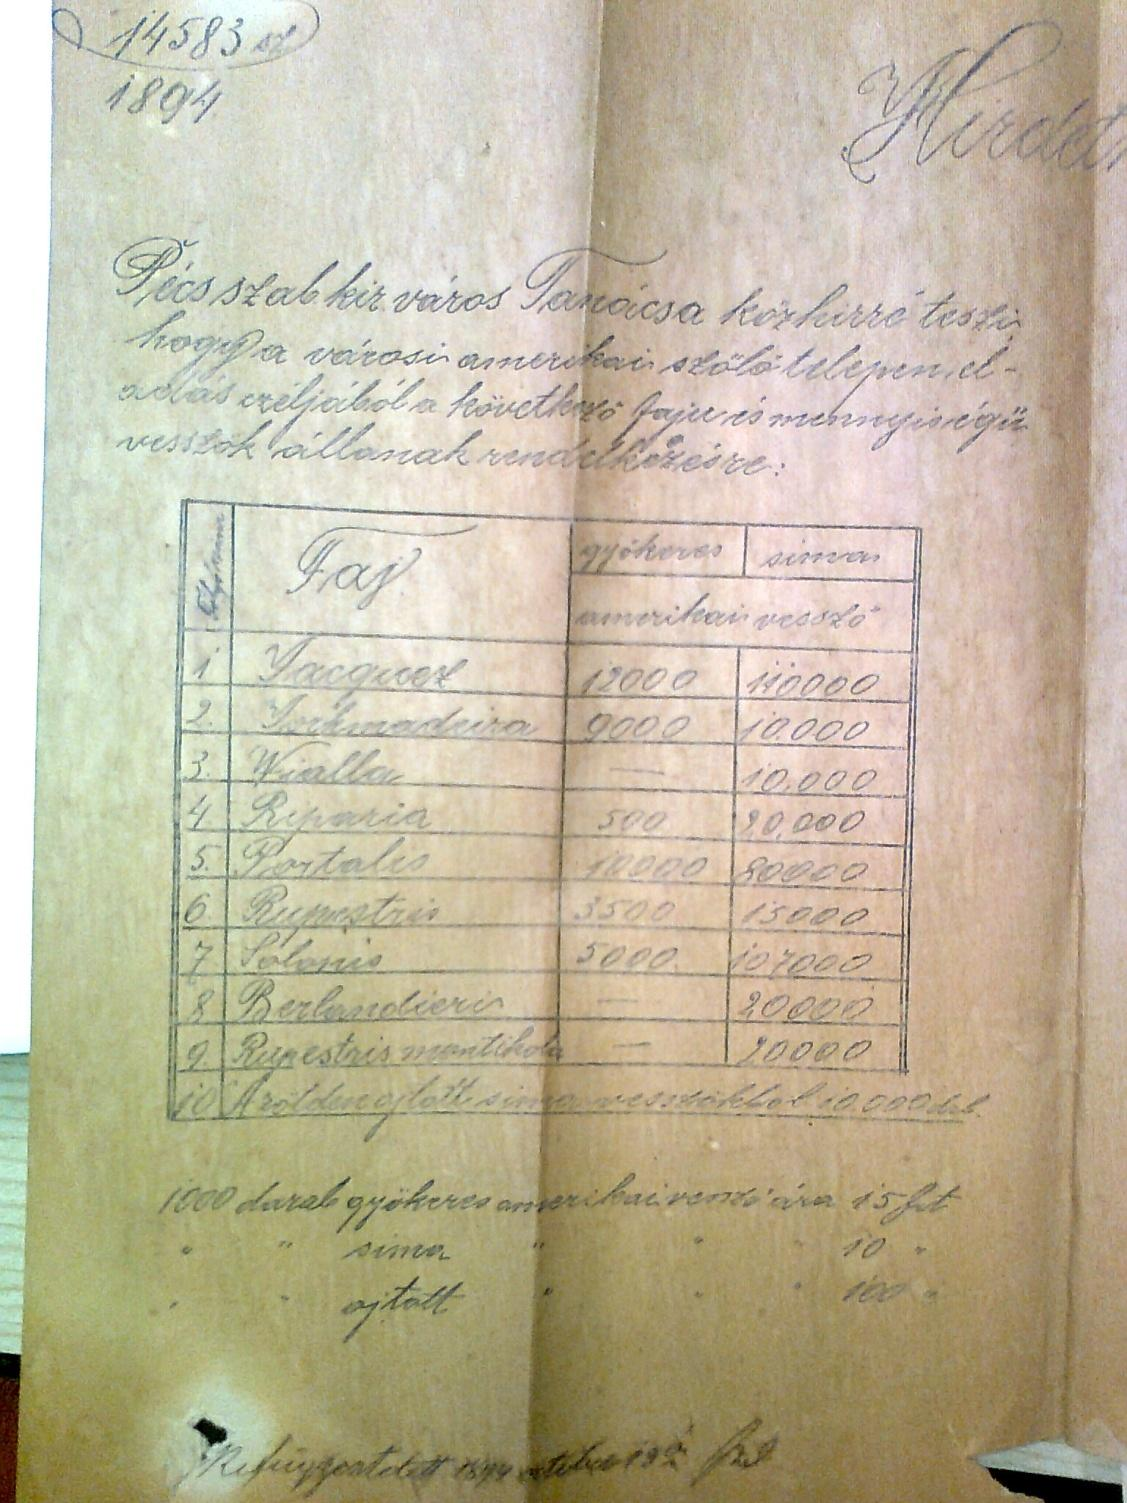 14583 sz
1894.
Hirdet
Pécs szab. kir. város Tanácsa közhirré teszi,
hogy a városi amerikai szőlőtelepen, el-
adás czéljából a következő faju és mennyiségű
vesszők állanak rendelkezésre:
Faj gyökeres sima
amerikai vessző
1 Jacquez 12000 140000
2. Yorkmadeira 9000 10.000
3. Wialla — 10.000
4 Riparia 500 20.000
5. Portalis 10000 80000
6. Rupestris 3500 15000
7 Solonis 5000. 107000
8 Berlandieri — 20000
9. Rupestris montikola — 20000
10 A zölden ojtott sima vesszőkből 10.000 drb.
1000 darab gyökeres amerikai vessző ára 15 frt
" " sima " " " 10 "
" " ojtott " " " 100 "
Kifüggesztetett 1894 október